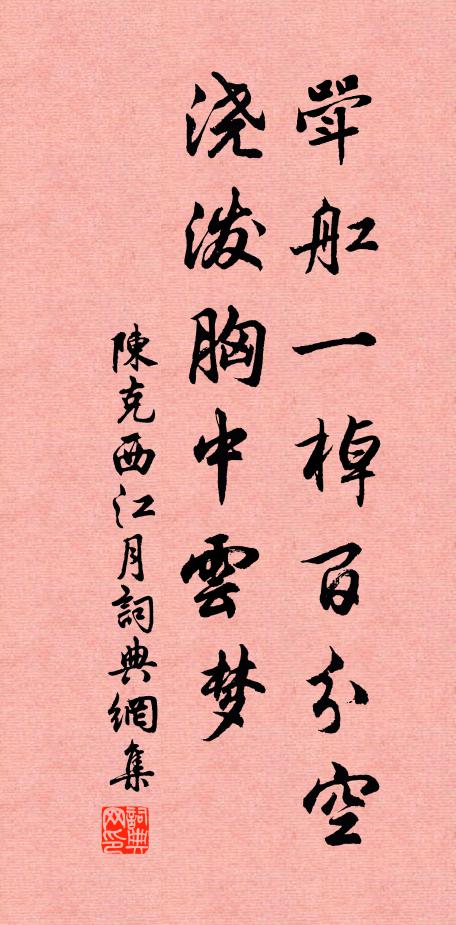 斝舡一棹百分空
浇泼胸中雲梦
陳克西江月詞典網集
詞典网印